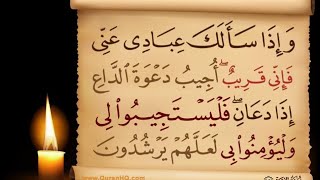 وَإِذَا سَأَلَكَ عِبَادِى عَنِّى
فَإِنِّى قَرِيبٌ ۖ أُجِيبُ دَعْوَةَ ٱلدَّاعِ
إِذَا دَعَانِ ۖ فَلْيَسْتَجِيبُوا۟ لِى
وَلْيُؤْمِنُوا۟ بِى لَعَلَّهُمْ يَرْشُدُونَ
www.QuranHQ.com